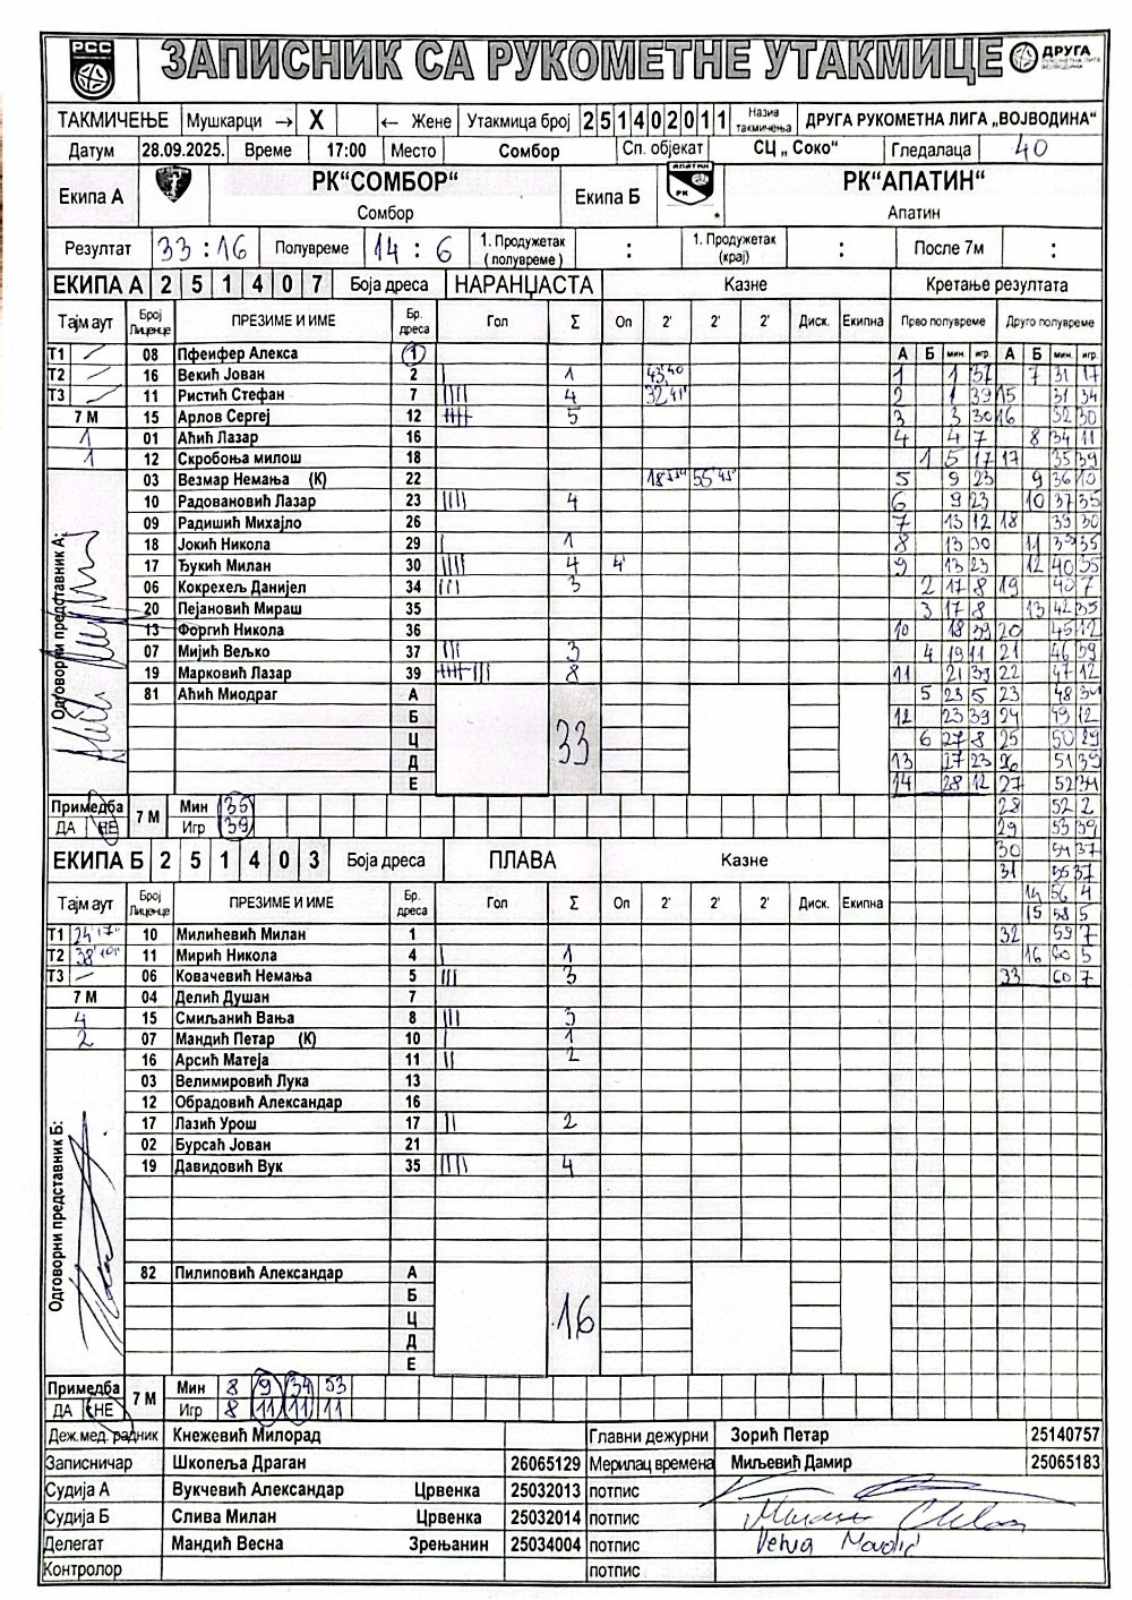 РСС
ЗАПИСНИК СА РУКОМЕТНЕ УТАКМИЦЕ
ДРУГА
ТАКМИЧЕЊЕ Мушкарци → X ← Жене Утакмица број 251402011 Назив такмичења ДРУГА РУКОМЕТНА ЛИГА „ВОЈВОДИНА“
Датум 28.09.2025. Време 17:00 Место Сомбор Сп. објекат СЦ „ Соко“ Гледалаца 40
Екипа А РК“СОМБОР“ Сомбор Екипа Б АПАТИН РК РК“АПАТИН“ Апатин
Резултат 33 : 16 Полувреме 14 : 6 1. Продужетак ( полувреме ) : 1. Продужетак (крај) : После 7м :
ЕКИПА А 2 5 1 4 0 7 Боја дреса НАРАНЏАСТА Казне Кретање резултата
Тајм аут Број Лиценце ПРЕЗИМЕ И ИМЕ Бр. дреса Гол Σ Оп 2' 2' 2' Диск. Екипна Прво полувреме Друго полувреме
Т1 08 Пфеифер Алекса 1 А Б мин. игр. А Б мин. игр.
Т2 16 Векић Јован 2 | 1 43,40 1 1 37 7 31 17
Т3 11 Ристић Стефан 7 |||| 4 32,41' 2 1 39 15 31 34
7 М 15 Арлов Сергеј 12 5 3 3 30 16 32 30
1 01 Аћић Лазар 16 4 4 7 8 34 11
1 12 Скробоња милош 18 1 5 17 17 35 39
03 Везмар Немања (К) 22 55'45" 5 9 23 9 36 10
10 Радовановић Лазар 23 |||| 4 6 9 23 10 37 35
09 Радишић Михајло 26 7 13 12 18 39 30
18 Јокић Никола 29 | 1 8 13 30 11 39 35
17 Ђукић Милан 30 |||| 4 4' 9 13 23 12 40 35
06 Кокрехељ Данијел 34 ||| 3 2 17 8 19 40 7
20 Пејановић Мираш 35 3 17 8 13 42 35
13 Форгић Никола 36 10 18 39 20 45 12
07 Мијић Вељко 37 ||| 3 4 19 11 21 46 39
19 Марковић Лазар 39 8 11 21 39 22 47 12
81 Аћић Миодраг А 5 23 5 23 48 34
Б 12 23 39 24 49 12
Ц 33 6 27 8 25 50 29
Д 13 27 23 26 51 39
Е 14 28 12 27 52 34
Одговорни представник А:
Примедба ДА НЕ 7 М Мин 35 28 52 2
Игр 39 29 53 39
ЕКИПА Б 2 5 1 4 0 3 Боја дреса ПЛАВА Казне 30 54 37
31 55 37
Тајм аут Број Лиценце ПРЕЗИМЕ И ИМЕ Бр. дреса Гол Σ Оп 2' 2' 2' Диск. Екипна 14 56 4
15 58 5
Т1 24'17" 10 Милићевић Милан 1 32 59 7
Т2 11 Мирић Никола 4 | 1 16 60 5
Т3 06 Ковачевић Немања 5 ||| 3 33 60 7
7 М 04 Делић Душан 7
4 15 Смиљанић Вања 8 ||| 3
2 07 Мандић Петар (К) 10 | 1
16 Арсић Матеја 11 || 2
03 Велимировић Лука 13
12 Обрадовић Александар 16
17 Лазић Урош 17 || 2
02 Бурсаћ Јован 21
19 Давидовић Вук 35 |||| 4
Одговорни представник Б:
82 Пилиповић Александар А
Б
Ц 16
Д
Е
Примедба ДА НЕ 7 М Мин 8 9 34 53
Игр 8 11 11 11
Деж.мед. радник Кнежевић Милорад Главни дежурни Зорић Петар 25140757
Записничар Шкопеља Драган 26065129 Мерилац времена Миљевић Дамир 25065183
Судија А Вукчевић Александар Црвенка 25032013 потпис
Судија Б Слива Милан Црвенка 25032014 потпис
Делегат Мандић Весна Зрењанин 25034004 потпис
Контролор потпис